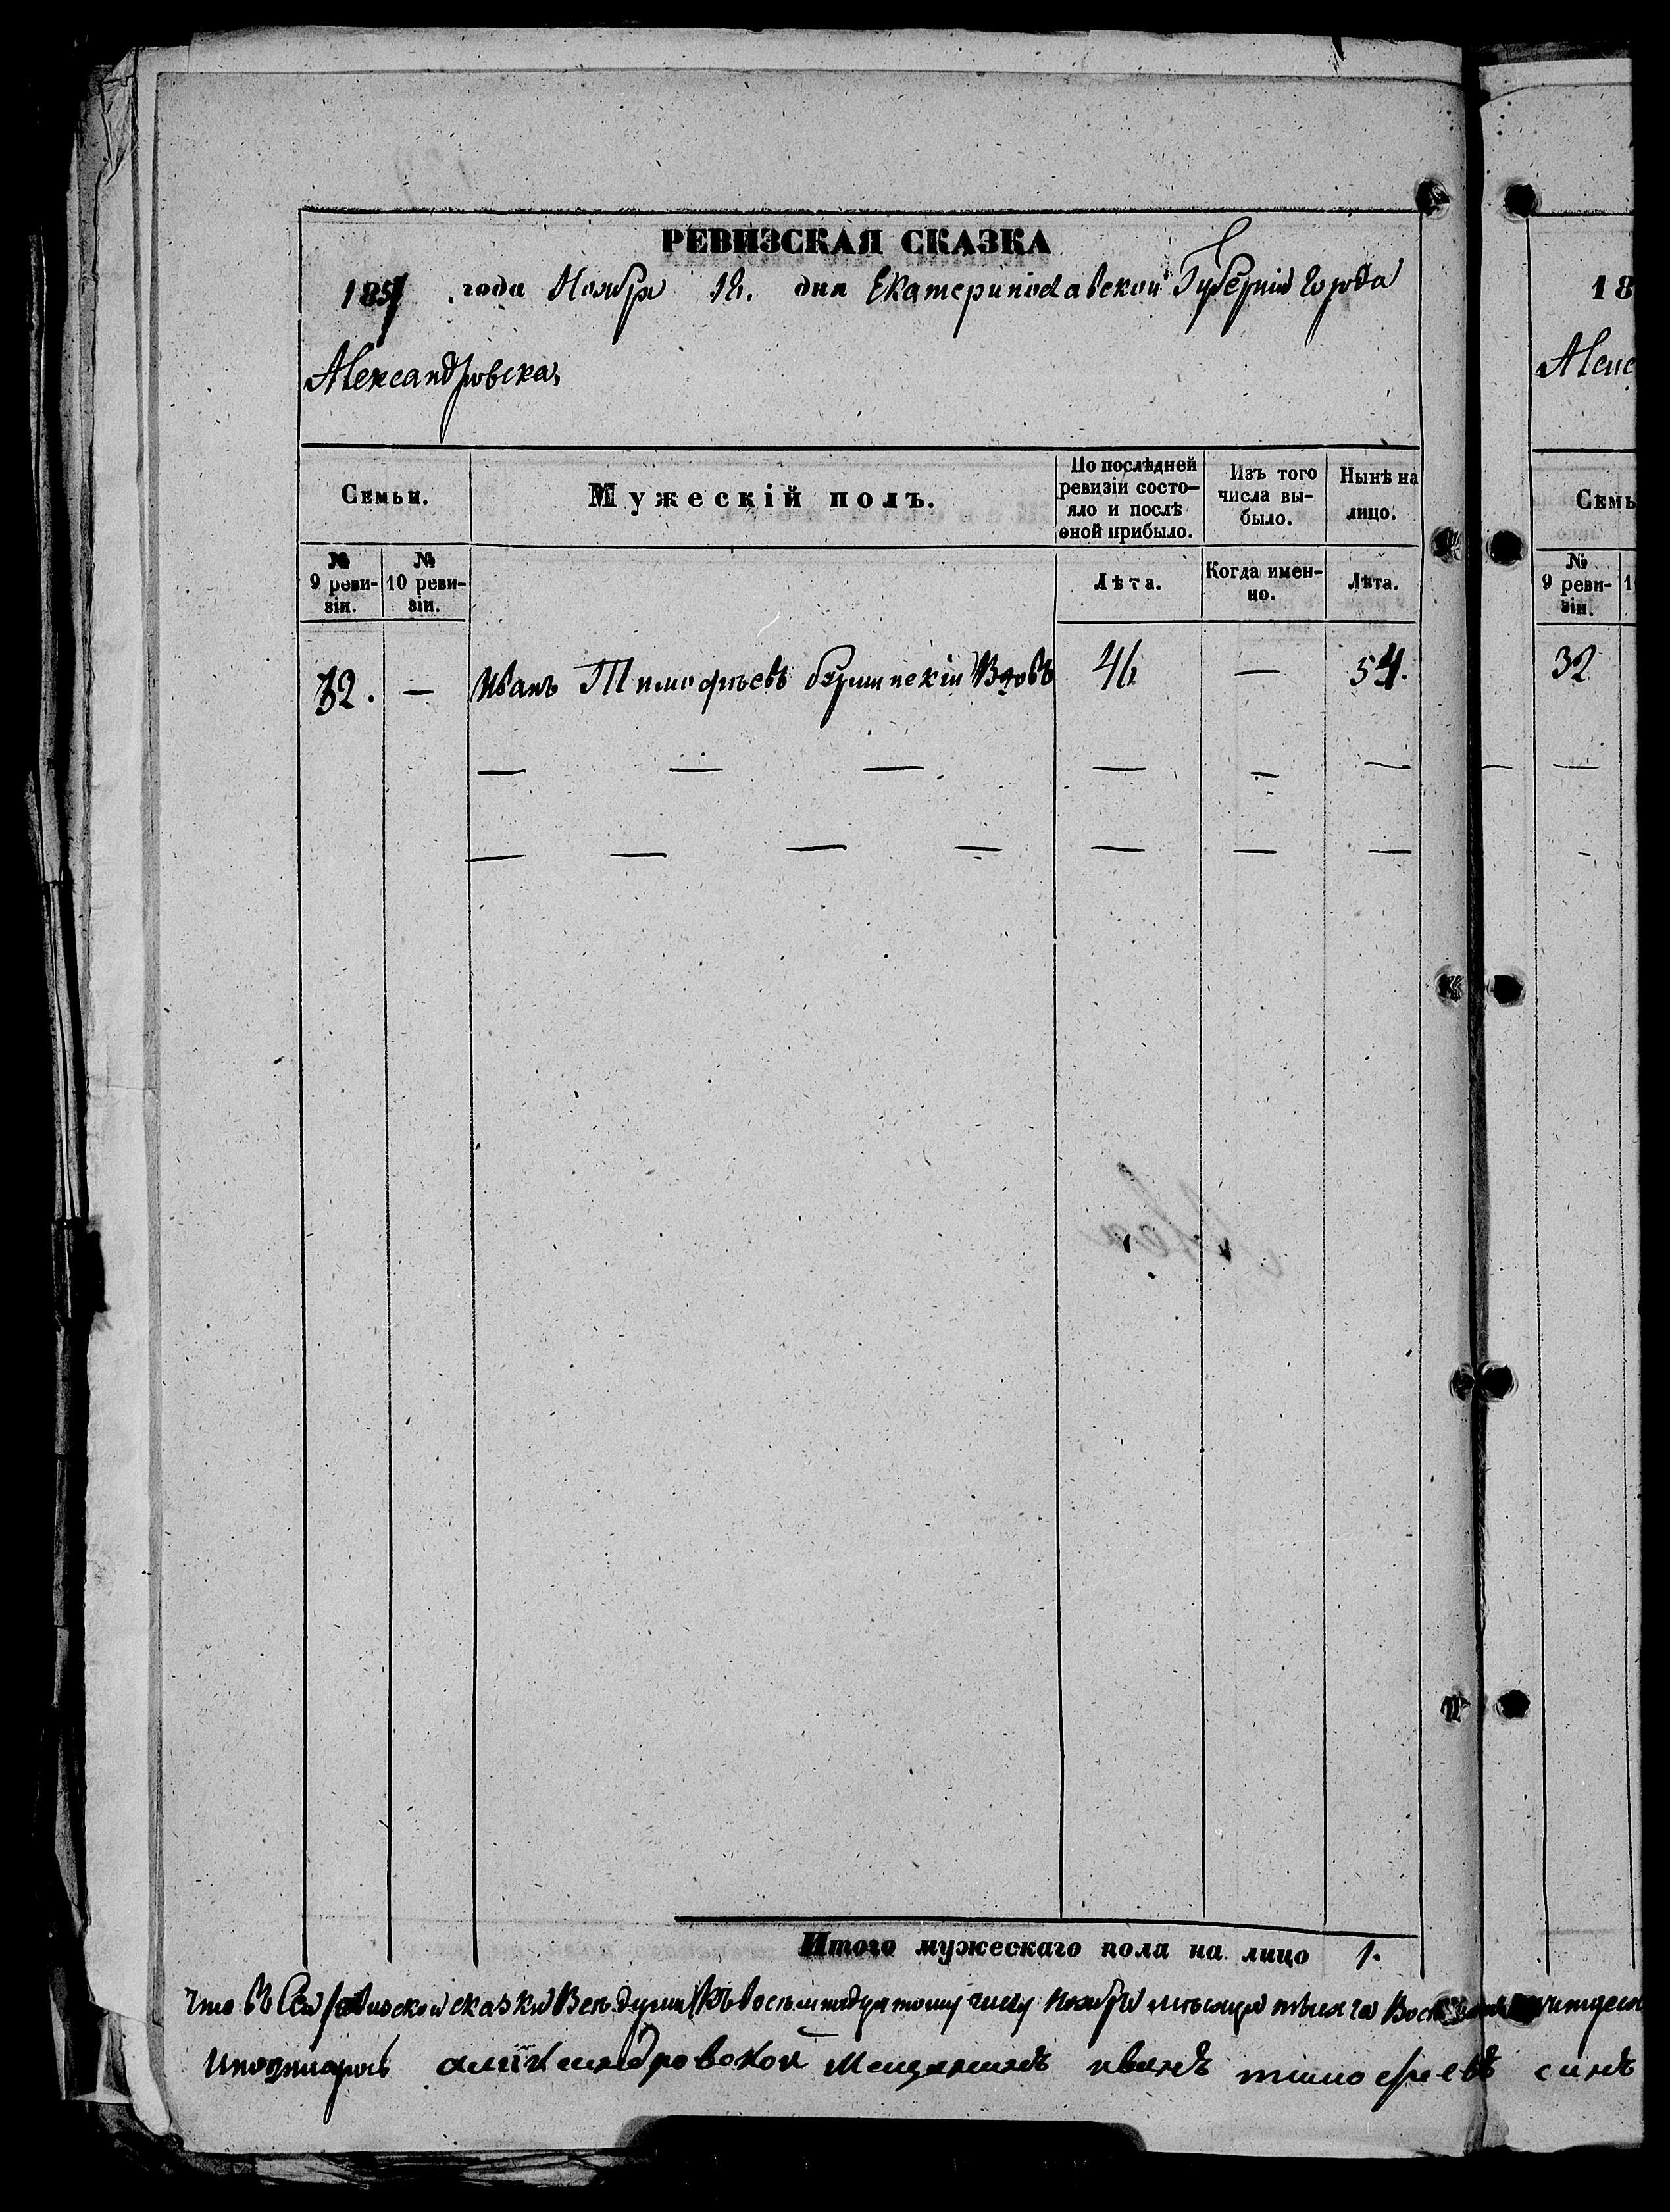 РЕВИЗСКАЯ СКАЗКА
1857 года Ноября 18. дня Екатеринославской Губерніи города
Александровска,
Семьи.
Мужескій полъ.
По послѣдней ревизіи состо-
яло и послѣ
оной прибыло.
Изъ того
числа вы-
было.
Нынѣ на
лицо.
№
9 реви-
зіи.
№
10 реви-
зіи.
Лѣта.
Когда имен-
но.
Лѣта.
32. — Иванъ Тимофѣевъ 46 — 54.
— — — — — —
— — — — — — —
Итого мужескаго пола на лицо 1.
что въ сей ревизской сказки всѣ души къ восемнадцатому числу Ноября мѣсяца тысяча
александровской мещанинъ иванъ тимофеевъ синъ
18
Алек
Семь
№
9 реви-
зіи.
1
32
—